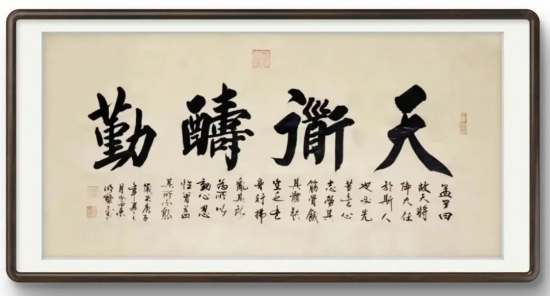 天衜醻勤
孟子曰
故天將
降大任
於斯人
也必先
苦其心
志勞其
筋骨餓
其體膚
空乏其
身行拂
亂其所
為所以
動心忍
性曾益
其所不能